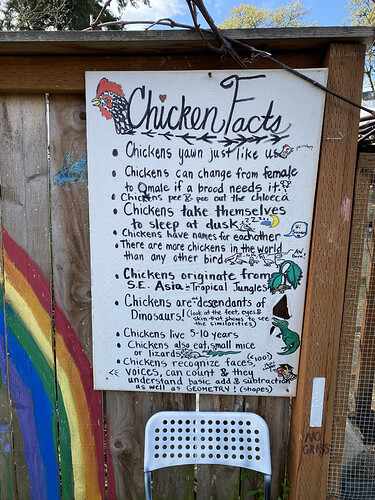 Chicken Facts
Chickens yawn just like us
Chickens can change from female
to male if a brood needs it
Chickens pee & poo out the chloeca
Chickens take themselves
to sleep at dusk
Chickens have names for eachother
There are more chickens in the world
than any other bird
Chickens originate from
S.E. Asia = Tropical Jungles
Chickens are descendants of
Dinosaurs! (look at the feet, eyes &
skin that shows to see
the similarities)
Chickens live 5-10 years
Chickens also eat small mice
or lizards
Chickens recognize faces, (<100)
voices, can count & they
understand basic add & subtraction
as well as GEOMETRY! (shapes)
NO
GRASS